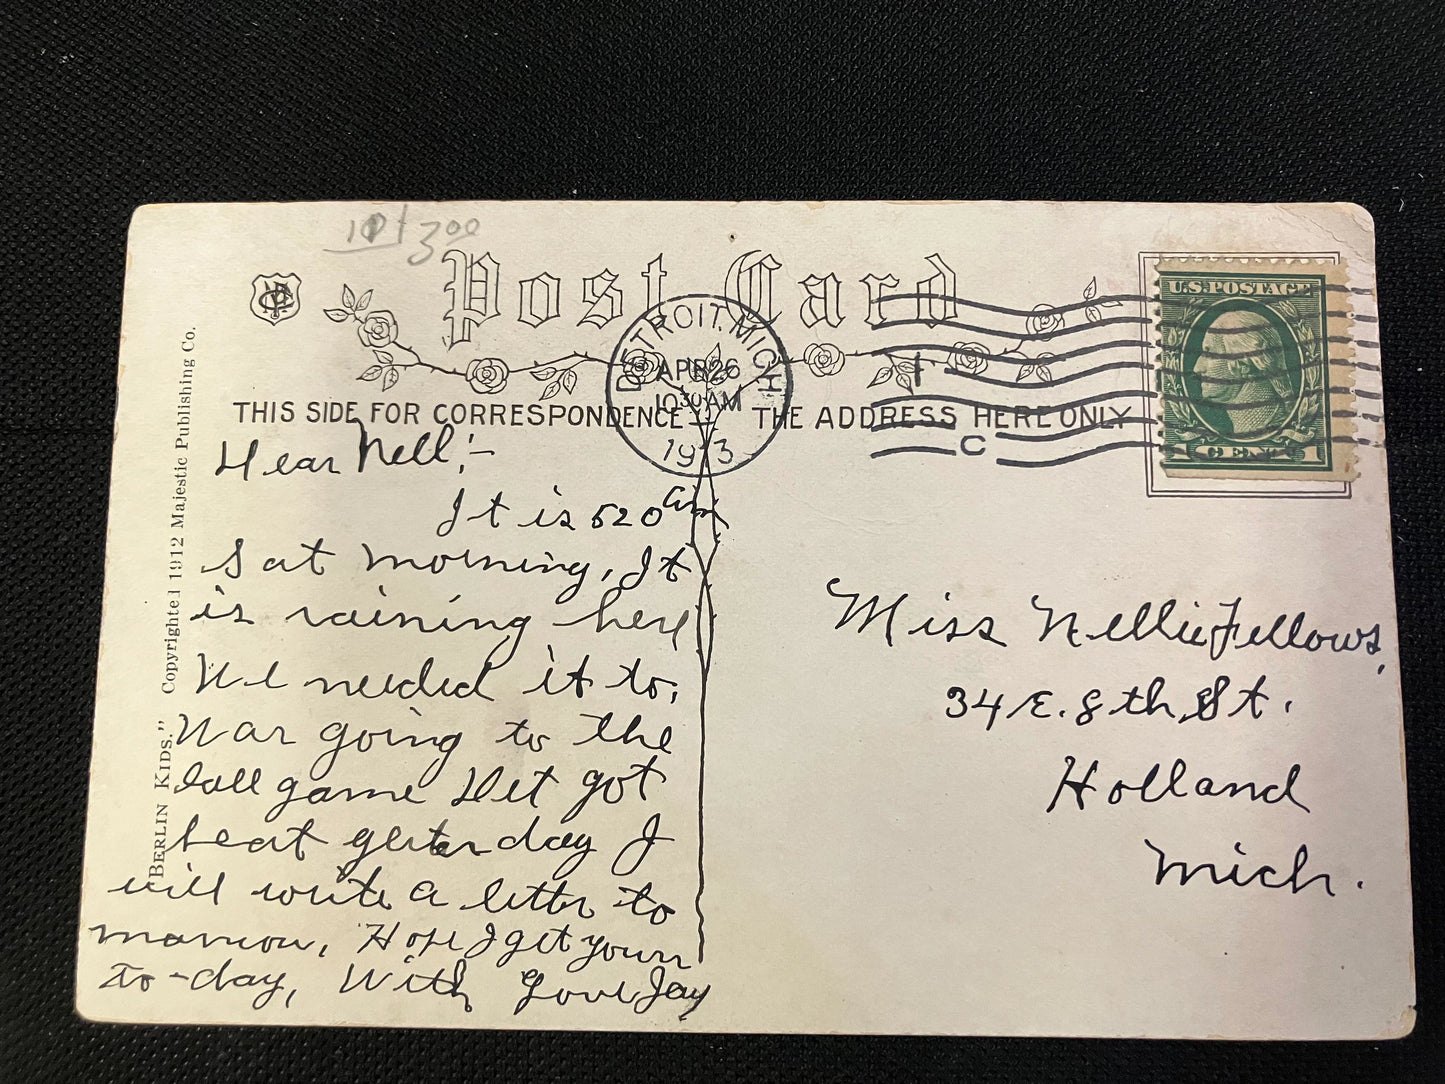 3.00
Post Card
U.S. POSTAGE
1 CENT 1
DETROIT, MICH.
APR 26
10 30 AM
1913
THIS SIDE FOR CORRESPONDENCE
THE ADDRESS HERE ONLY
C
"BERLIN KIDS." Copyrighted 1912 Majestic Publishing Co.
Dear Nell;-
It is 520 am
Sat morning, It
is raining here
We needed it to,
Was going to the
ball game Det got
beat yesterday I
will write a letter to
morrow, Hope I get yours
to-day, With Love Jay
Miss Nellie Fellows,
34 E. 8th St.
Holland
Mich.